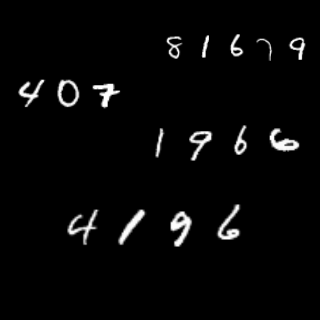 81679
407
1966
4196